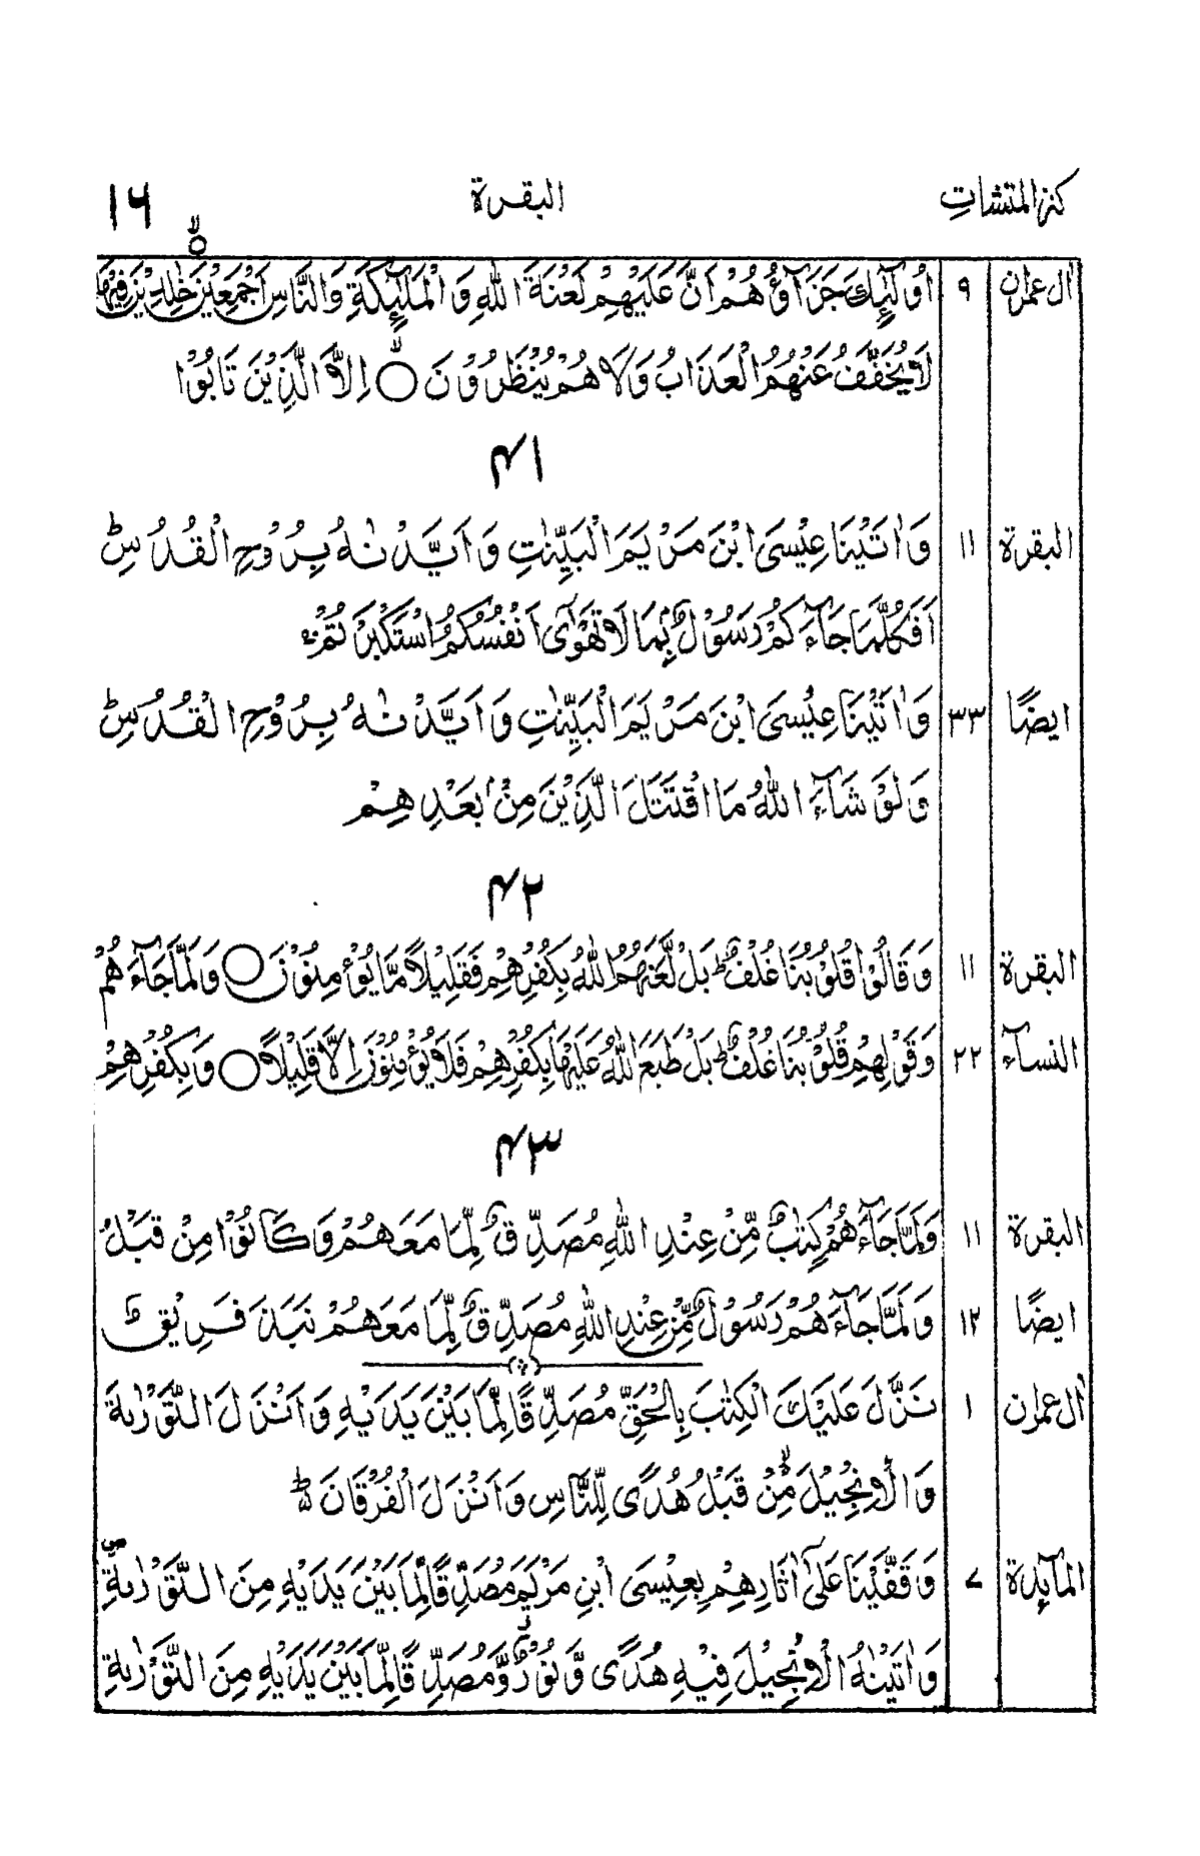 كنز المتشابهات البقرة ١٦
اٰل عمران ٩ اُولٰٓئِكَ جَزَآؤُهُمْ اَنَّ عَلَيْهِمْ لَعْنَةَ اللّٰهِ وَالْمَلٰٓئِكَةِ وَالنَّاسِ اَجْمَعِيْنَ ۙ۝ خٰلِدِيْنَ فِيْهَا
لَا يُخَفَّفُ عَنْهُمُ الْعَذَابُ وَلَا هُمْ يُنْظَرُوْنَ ۙ۝ اِلَّا الَّذِيْنَ تَابُوْا
۴۱
البقرة ١١ وَاٰتَيْنَا عِيْسَى ابْنَ مَرْيَمَ الْبَيِّنٰتِ وَاَيَّدْنٰهُ بِرُوْحِ الْقُدُسِ ؕ
اَفَكُلَّمَا جَآءَكُمْ رَسُوْلٌۢ بِمَا لَا تَهْوٰٓى اَنْفُسُكُمُ اسْتَكْبَرْتُمْ ۚ
ايضًا ٣٣ وَاٰتَيْنَا عِيْسَى ابْنَ مَرْيَمَ الْبَيِّنٰتِ وَاَيَّدْنٰهُ بِرُوْحِ الْقُدُسِ ؕ
وَلَوْ شَآءَ اللّٰهُ مَا اقْتَتَلَ الَّذِيْنَ مِنْۢ بَعْدِهِمْ
۴۲
البقرة ١١ وَقَالُوْا قُلُوْبُنَا غُلْفٌ ؕ بَلْ لَّعَنَهُمُ اللّٰهُ بِكُفْرِهِمْ فَقَلِيْلًا مَّا يُؤْمِنُوْنَ ۝ وَلَمَّا جَآءَهُمْ
النسآء ٢٢ وَقَوْلِهِمْ قُلُوْبُنَا غُلْفٌ ؕ بَلْ طَبَعَ اللّٰهُ عَلَيْهَا بِكُفْرِهِمْ فَلَا يُؤْمِنُوْنَ اِلَّا قَلِيْلًا ۝ وَبِكُفْرِهِمْ
۴۳
البقرة ١١ وَلَمَّا جَآءَهُمْ كِتٰبٌ مِّنْ عِنْدِ اللّٰهِ مُصَدِّقٌ لِّمَا مَعَهُمْ وَكَانُوْا مِنْ قَبْلُ
ايضًا ١٢ وَلَمَّا جَآءَهُمْ رَسُوْلٌ مِّنْ عِنْدِ اللّٰهِ مُصَدِّقٌ لِّمَا مَعَهُمْ نَبَذَ فَرِيْقٌ
اٰل عمران ١ نَزَّلَ عَلَيْكَ الْكِتٰبَ بِالْحَقِّ مُصَدِّقًا لِّمَا بَيْنَ يَدَيْهِ وَاَنْزَلَ التَّوْرٰىةَ
وَالْاِنْجِيْلَ ۙ مِنْ قَبْلُ هُدًى لِّلنَّاسِ وَاَنْزَلَ الْفُرْقَانَ ؕ
المآئدة ٧ وَقَفَّيْنَا عَلٰٓى اٰثَارِهِمْ بِعِيْسَى ابْنِ مَرْيَمَ مُصَدِّقًا لِّمَا بَيْنَ يَدَيْهِ مِنَ التَّوْرٰىةِ ۪
وَاٰتَيْنٰهُ الْاِنْجِيْلَ فِيْهِ هُدًى وَّنُوْرٌ ۙ وَّمُصَدِّقًا لِّمَا بَيْنَ يَدَيْهِ مِنَ التَّوْرٰىةِ